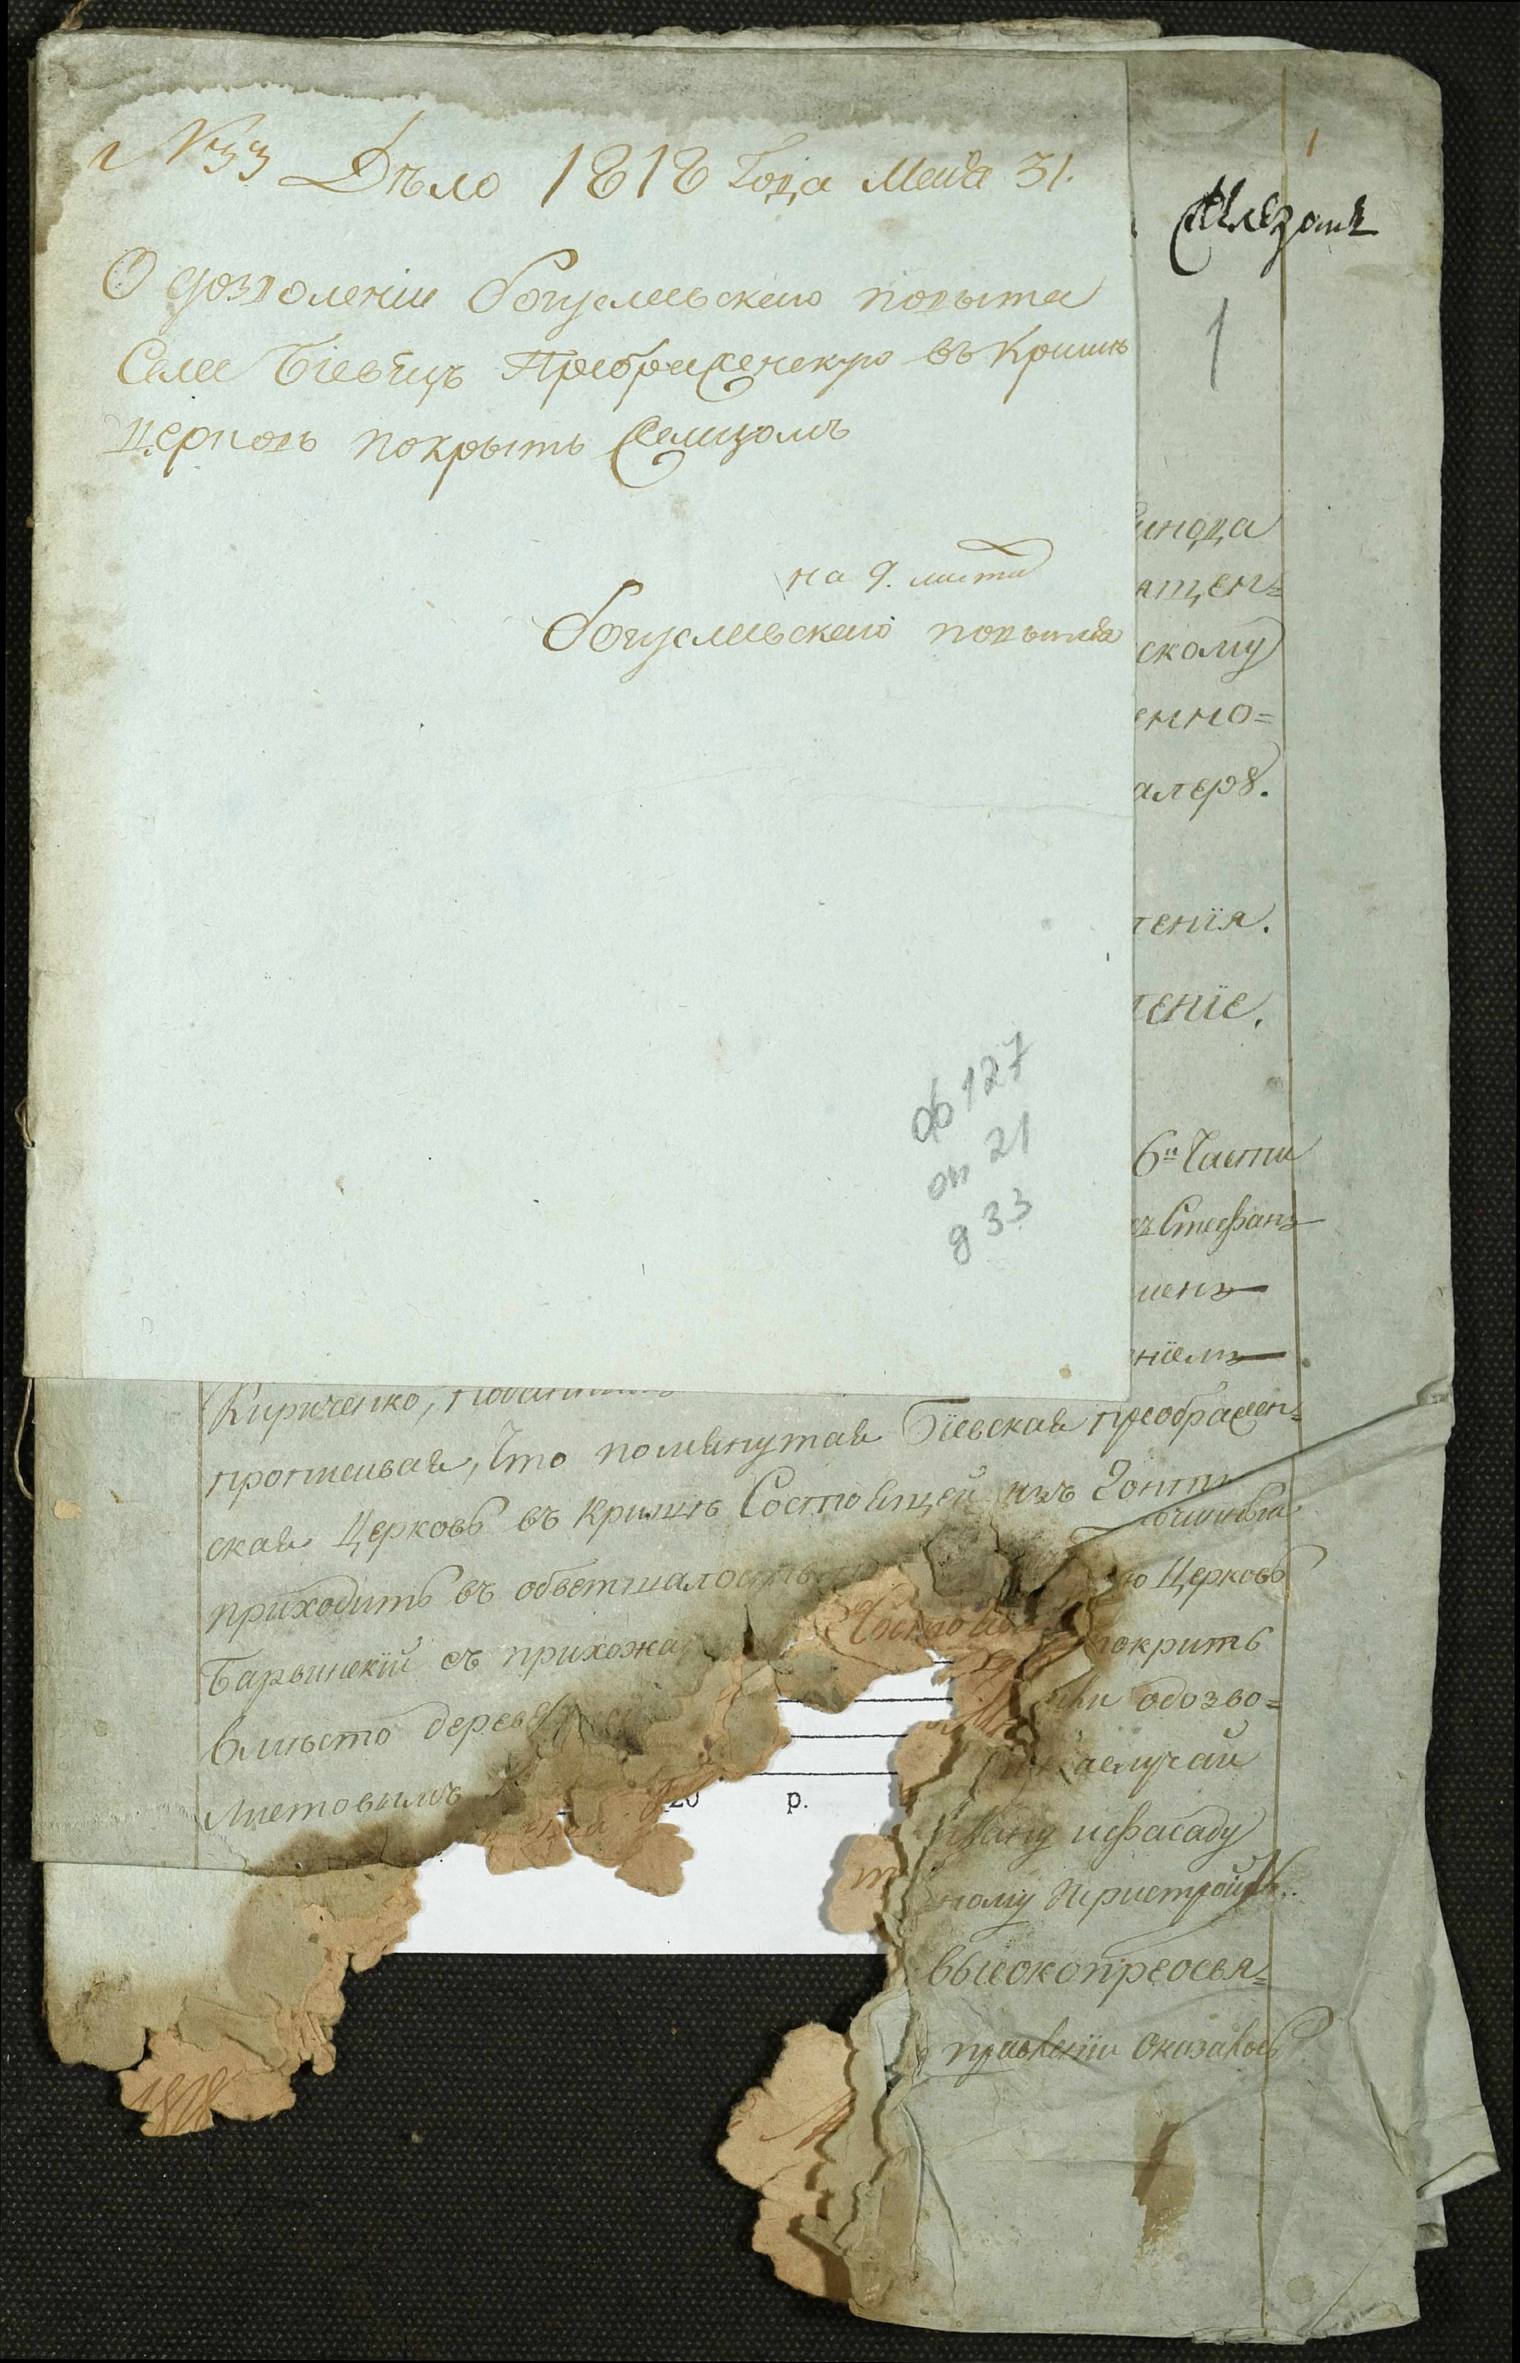 №33 Дѣло 1818 Года Мая 31.
О дозволеніи Богуславскаго повыта
Села Біевецъ Преображенскую въ Кришѣ
Церковь покрыть Желизомъ
на 9. листа
Богуславскаго повыта
ф 127
оп 21
д 33
1
1
инода
ящен=
скому
енно=
алерꙋ.
тенїя.
тенїе.
6й Части
Стефанъ
менъ
нїемъ
Кириченко,
прописивая, Что помянутая Бїевская преображен=
ская Церковь въ Кришѣ Состоящей изъ Гонтъ
приходитъ въ обветшалость
ю Церковь
Барвинскїй съ прихожа
покрить
вмѣсто деревя
одозво=
Листовымъ
случай
ифасаду
ному Пристройк
высокопреосвя=
правленїи Оказалось
1818
20 р.